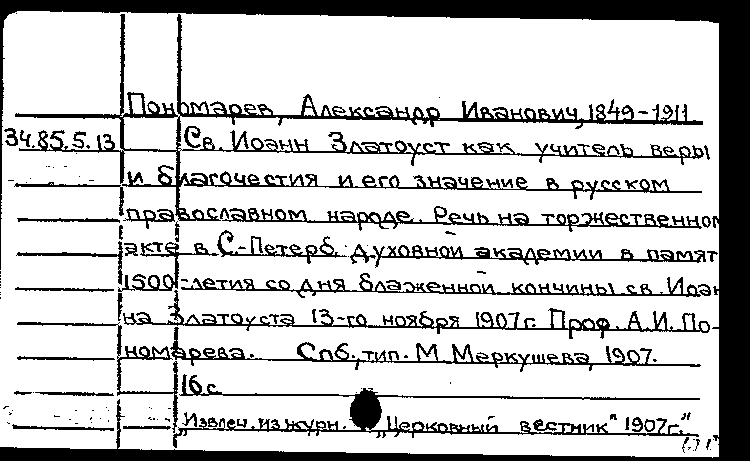 Пономарев, Александр Иванович, 1849-1911.
34.85.5.13 Св. Иоанн Златоуст как учитель веры
и благочестия и его значение в русском
православном народе. Речь на торжественном
акте в С.-Петерб. духовной академии в памят
1500-летия со дня блаженной кончины св. Иоан
на Златоуста 13-го ноября 1907г. Проф. А.И. По-
номарева. Спб., тип. М. Меркушева, 1907.
16 с.
„Извлеч. из журн. „Церковный вестник" 1907г."